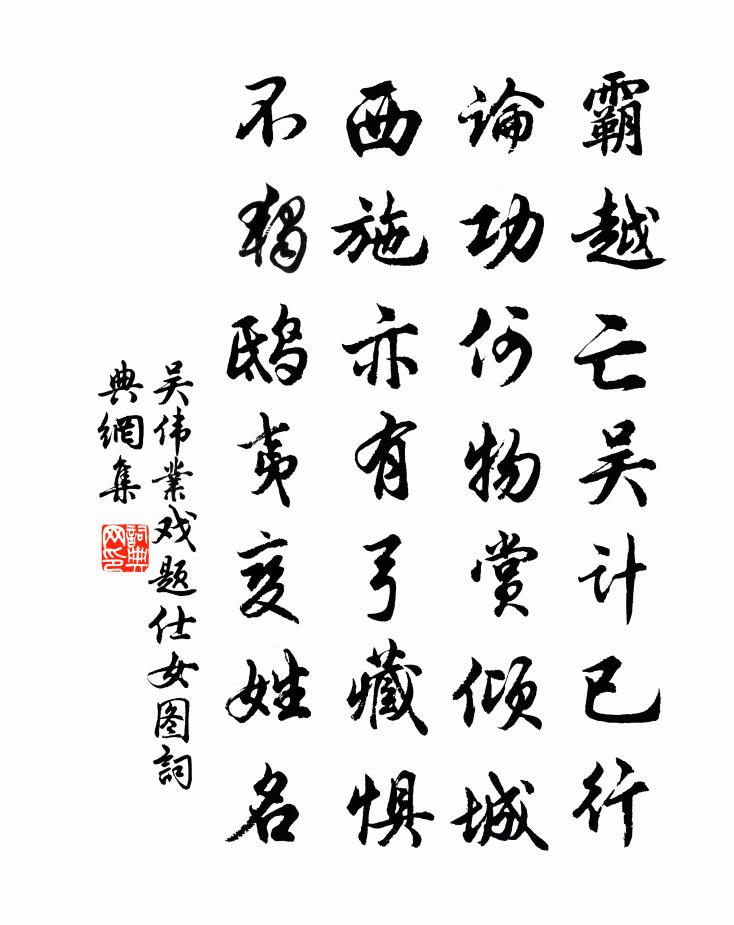 霸越亡吴计已行
論功何物赏倾城
西施亦有弓藏惧
不獨鸱夷变姓名
吴伟業戏题仕女图詞
典網集
詞典
网印